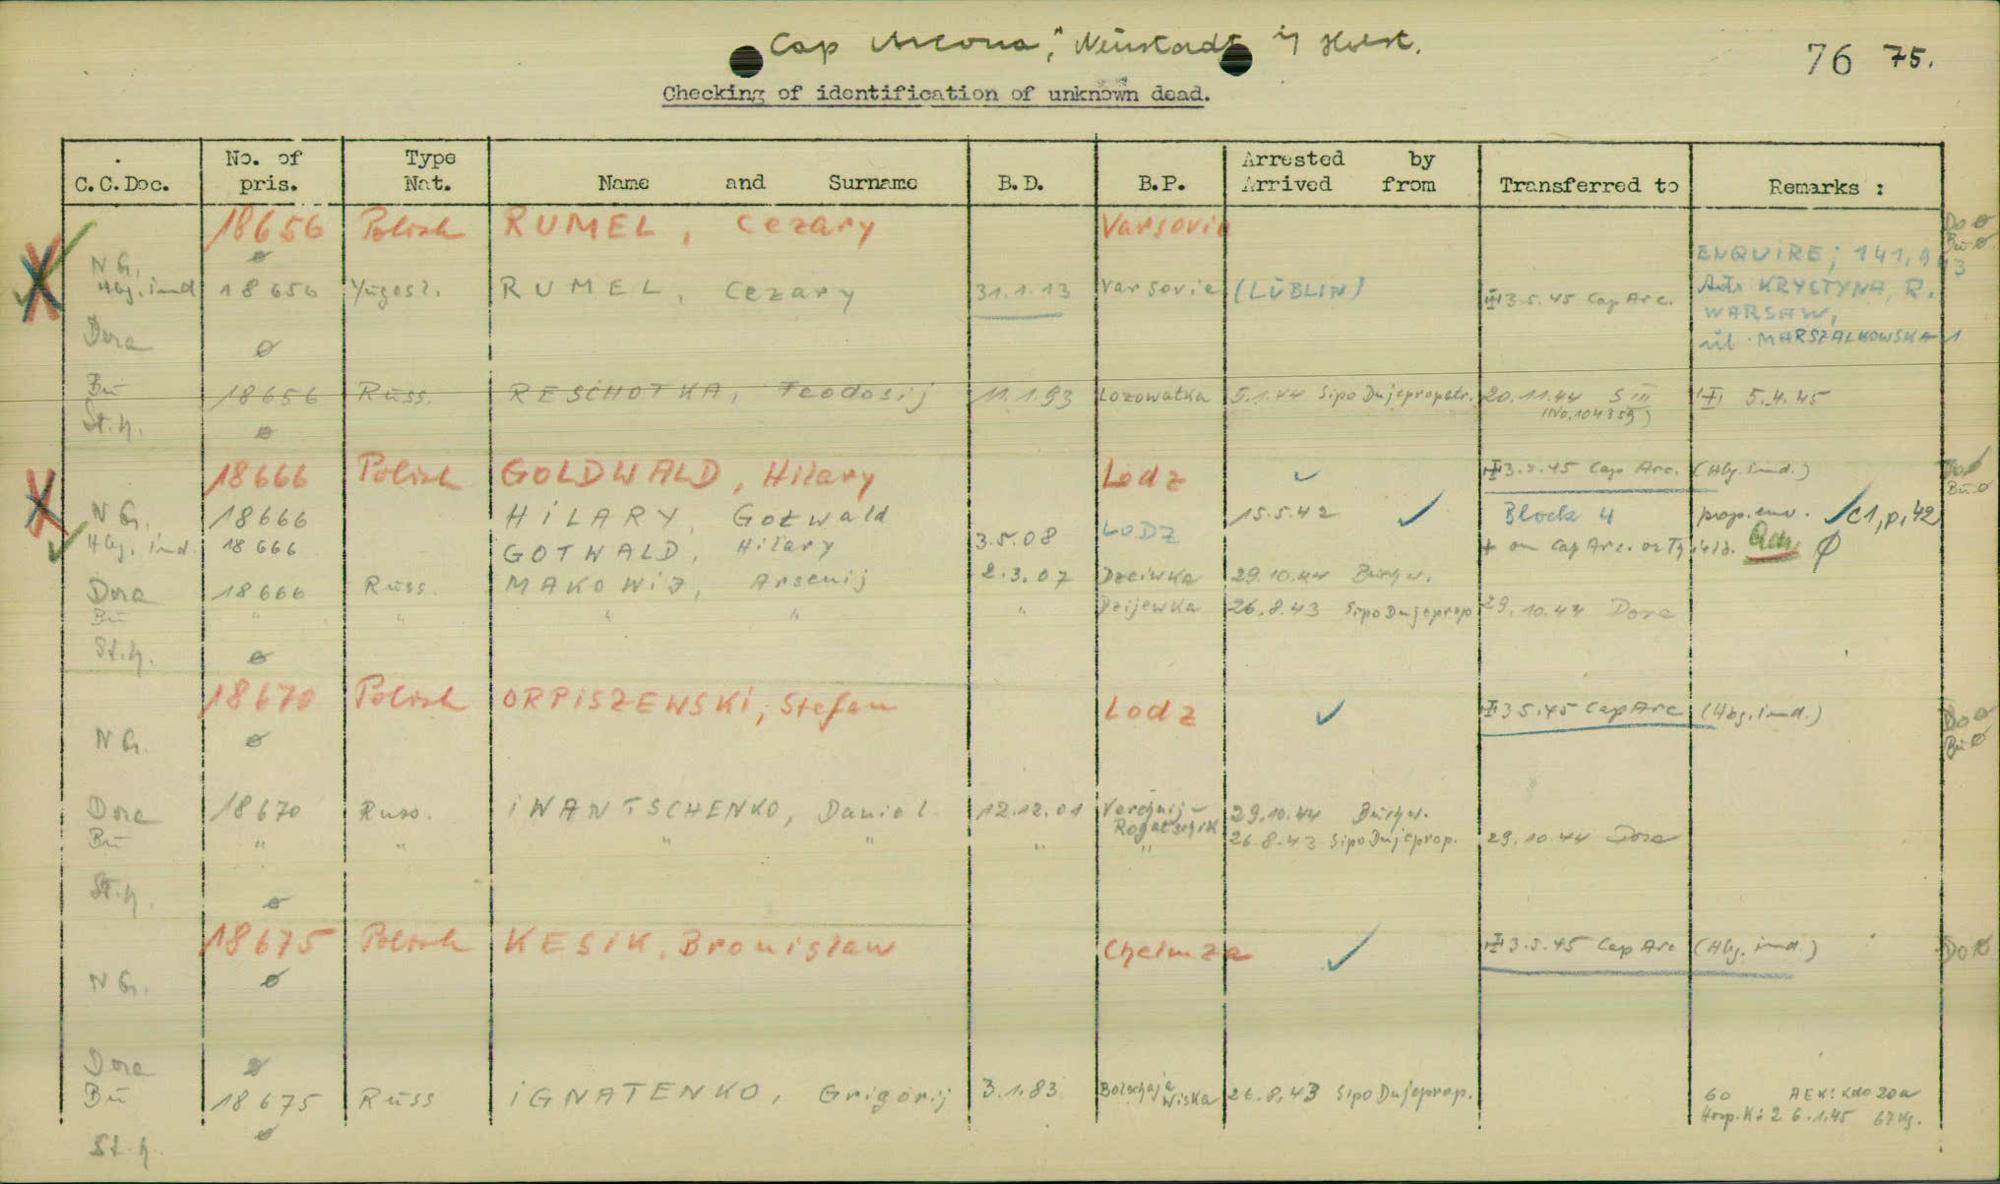 Cap Arcona," Neustadt i/ Holst.
76 75.
Checking of identification of unknown dead.
C.C.Doc. No. of pris. Type Nat. Name and Surname B.D. B.P. Arrested by Arrived from Transferred to Remarks :
18656 Polish RUMEL, Cezary Varsovie Do ø
Bu ø
N G. ø ENQUIRE; 141,913
Hbg. ind 18656 Yugosl. RUMEL, Cezary 31.1.13 Varsovie (LÜBLIN) 3.5.45 Cap Arc. KRYSTYNA, R.
WARSAW,
Dora ø ul. MARSZALKOWSKA 1
Bu 18656 Russ. RESCHOTKA, Teodosij 11.1.93 Lozowatka 5.1.44 Sipo Dnjepropetr. 20.11.44 S III 5.4.45
(No.104359)
St.h. ø
18666 Polish GOLDWALD, Hilary Lodz ✓ 3.5.45 Cap Arc. (Hbg. ind.) Do ø
Bu ø
N G. 18666 HILARY, Gotwald LODZ 15.5.42 ✓ Block 4 prop. env. ✓ c1, p, 42
Hbg. ind. 18666 GOTWALD, Hilary 3.5.08 + on Cap Arc. or ø
Dora 18666 Russ. MAKOWIJ, Arsenij 2.3.07 Dzeiwka 29.10.44 Buchw.
Bu " " " " " Dzijewka 26.8.43 Sipo Dnjeprop 29.10.44 Dora
St.h. ø
18670 Polish ORPISZEWSKI, Stefan Lodz ✓ 3.5.45 Cap Arc (Hbg. ind.) Do ø
Bu ø
N G. ø
Dora 18670 Russ. IWANTSCHENKO, Daniel 12.12.01 Verchnij- Rogatschik 29.10.44 Buchw.
Bu " " " " " " 26.8.43 Sipo Dnjeprop. 29.10.44 Dora
St.h. ø
18675 Polish KESIK, Bronislaw Chelmza ✓ 3.5.45 Cap Arc (Hbg. ind.) Do ø
N G. ø
Dora ø
Bu 18675 Russ IGNATENKO, Grigorij 3.1.83 Bolschaja Wiska 26.8.43 Sipo Dnjeprop. 60 AEK: Kdo 20a
Hosp. K: 2 6.1.45 67 Kg.
St.h. ø